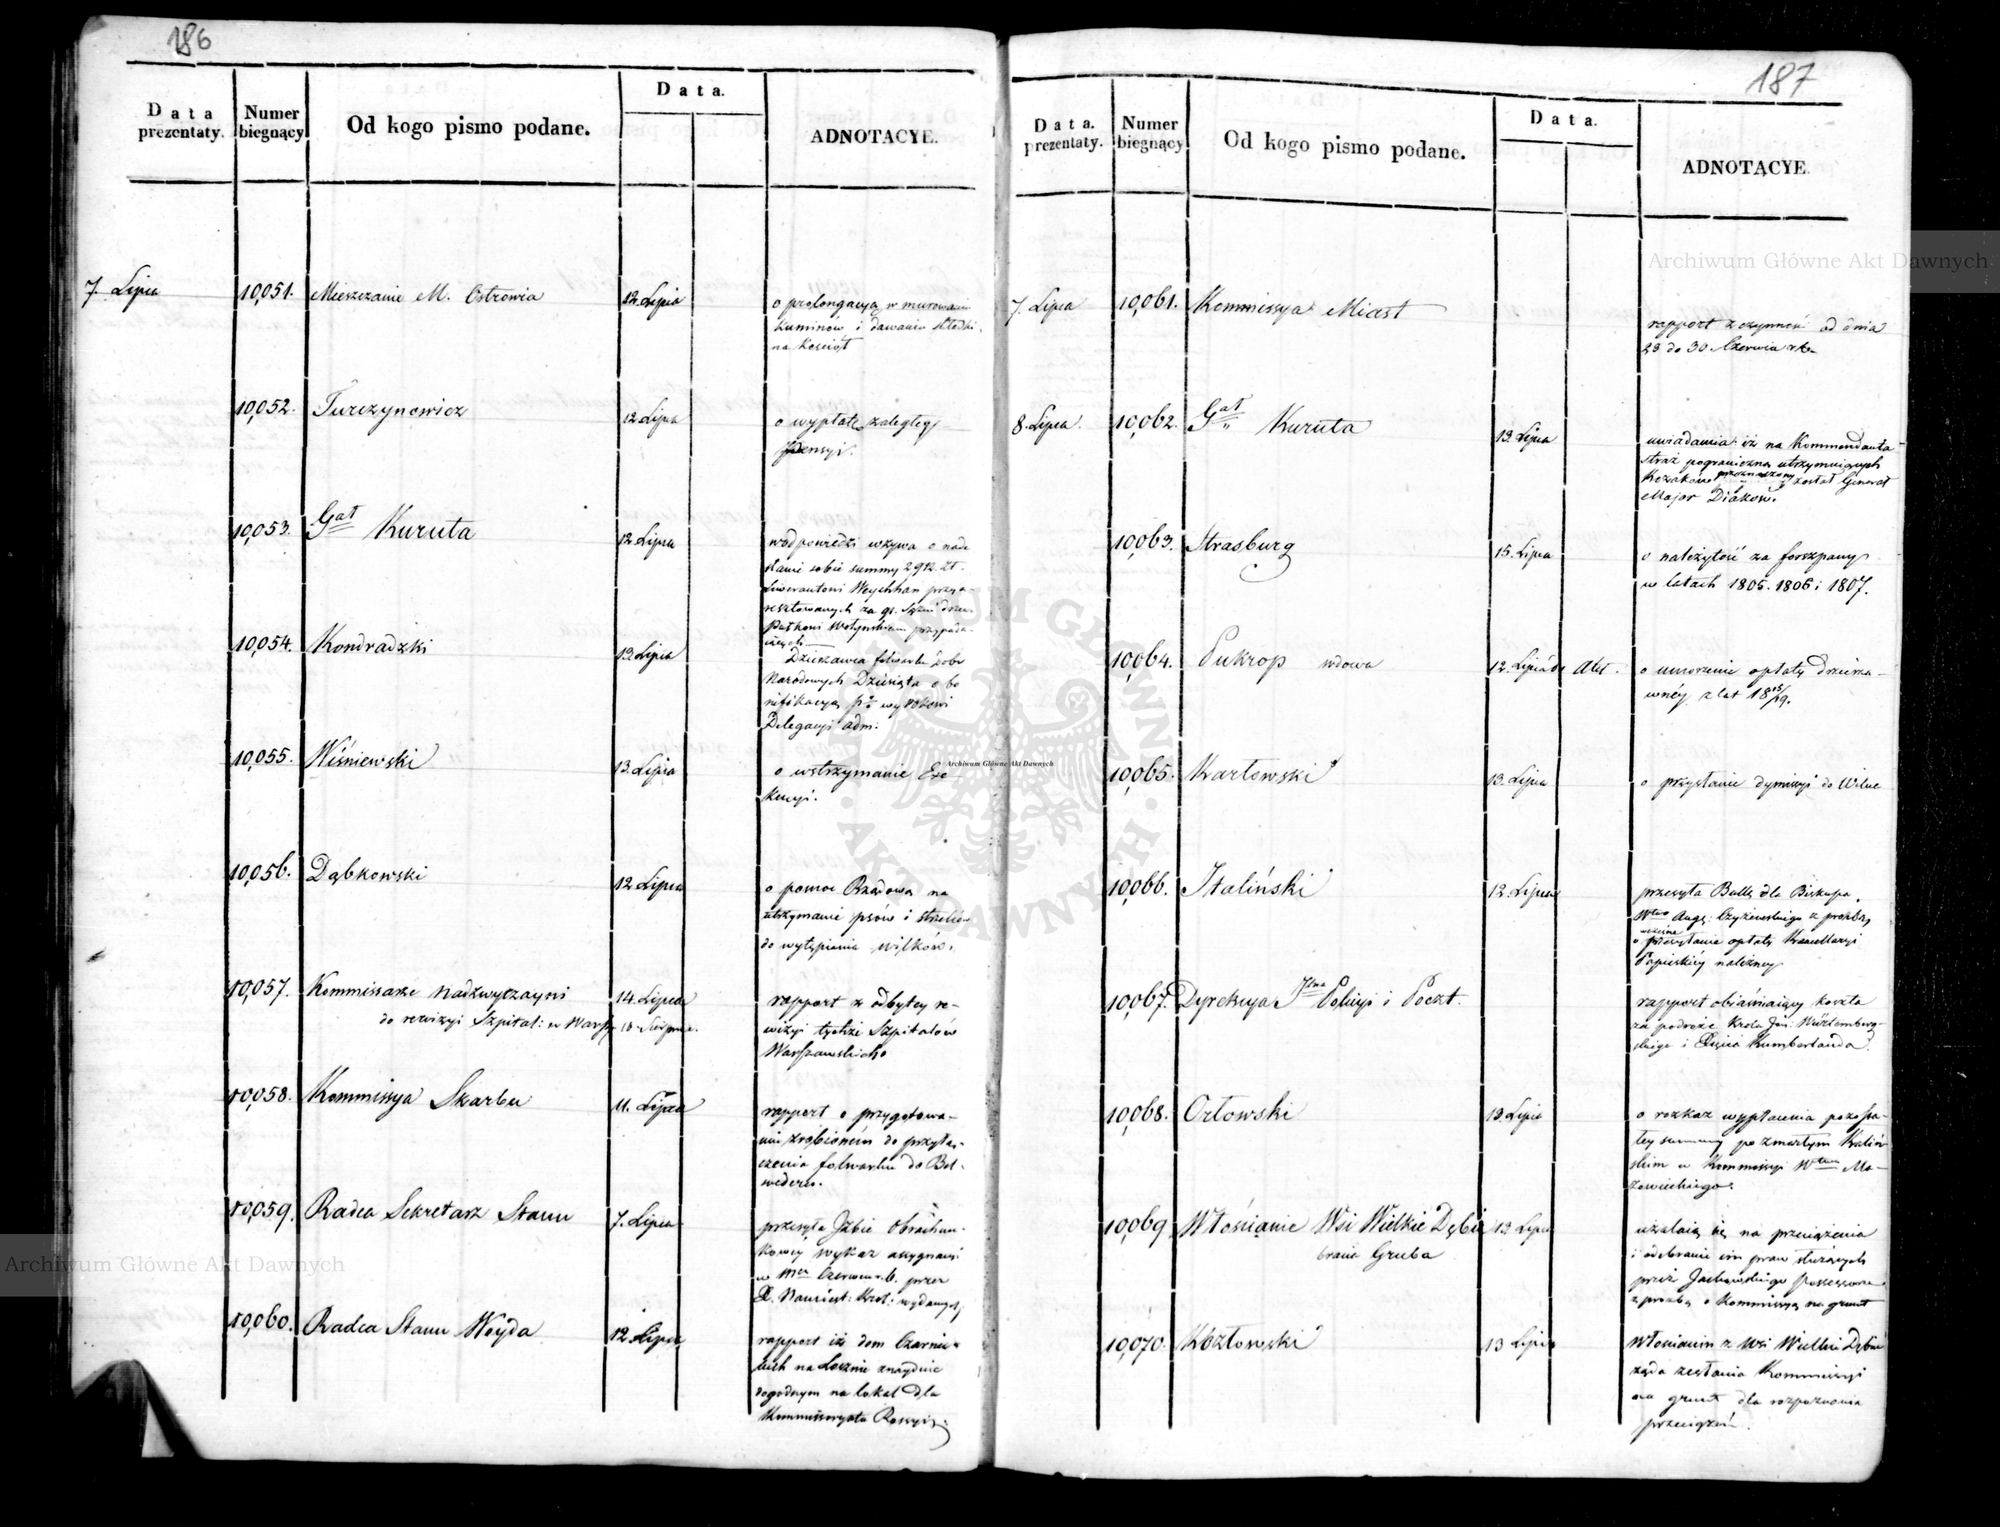 186
Data prezentaty.
Numer biegnący
Od kogo pismo podane.
Data.
ADNOTACYE.
7. Lipca
10,051.
Mieszczanie M. Ostrowia
12. Lipca
o prolongacyą w murowaniu
kominów i dawaniu składki
na Kościół
10,052.
Turczynowicz
12 Lipca
o wypłatę zaległey
pensyi.
10,053.
Gał Kuruta
12 Lipca
w odpowiedzi wzywa o nade
słanie sobie summy 2912. zł.
10,054.
Kondradzki
12 Lipca
Dzierżawca folwarku dóbr
Narodowych
Delegacyi adm:
10,055.
Wiśniewski
13. Lipca
o wstrzymanie Exe
kucyi.
10,056.
Dąbkowski
12 Lipca
o pomoc Rządową na
utrzymanie psów i strzelców
do wytępienia wilków.
10,057.
Kommissarze Nadzwyczayni
do rewizyi Szpital: w Warsz
14. Lipca
rapport z odbytey re-
wizyi tychże Szpitalów
Warszawskich
10,058.
Kommissya Skarbu
11. Lipca
rapport o przygotowa-
niu zrobionem do przyłą-
czenia folwarku do Bel-
wederu.
10,059.
Radca Sekretarz Stanu
7. Lipca
przesyła Izbie Obrachun-
kowey wykaz assygnacyi
w mcu Czerwcu r.b. przez
X. Namiest: Król: wydanych
10,060.
Radca Stanu Woyda
12. Lipca
rapport iż dom Czarnec-
kich na Lesznie znayduie
dogodnym na lokal dla
Kommissoryatu Rossyi:
187
Data. prezentaty.
Numer biegnący
Od kogo pismo podane.
Data.
ADNOTACYE.
7. Lipca
10,061.
Kommissya Miast
rapport z czynności od dnia
23 do 30. Czerwca rb.
8. Lipca.
10,062.
Gał Kuruta
13. Lipca
uwiadamia iż na Kommendanta
straż pograniczną utrzymuiących
Kozaków przeznaczony został Generał
Major Diaków.
10,063.
Strasburg
15. Lipca
o należytość za forszpany
w latach 1805. 1806 i 1807.
10,064.
Pukrop wdowa
12. Lipca
o umorzenie opłaty dzierża-
wnéy z lat 18 18/19.
10,065.
Karłowski
13. Lipca
o przysłanie dymissyi do Wilna
10,066.
Italiński
12. Lipca
przesyła Bullę dla Biskupa
Augs: Czyżewskiego z prośbą
o przesłanie opłaty Kancellaryi
Papieskiey należney
10,067.
Dyrekcya Jlna Policyi i Poczt.
rapport obiaśniaiący koszta
za podróże Króla Jmi Würtemberg-
skiego i Xięcia Kumberlanda.
10,068.
Orłowski
13. Lipca
o rozkaz wypłacenia pozosta-
łey summy po zmarłym Kaliń-
skim w Kommissyi Wtwa Ma-
zowieckiego.
10,069
Włościanie Wsi Wielkie Dębie
branie Gruba
13 Lipca
użalaią się na przeciążenia
i odebranie im praw służących
przez Possessora
z prośbą o Kommissyą na grunt
10,070.
Kozłowski
13 Lipca
Włościanom z Wsi Wielkie Dębie
żąda zesłania Kommissyi
na grunt dla rozpoznania
przeciążeń.
Archiwum Główne Akt Dawnych
Archiwum Główne Akt Dawnych
Archiwum Główne Akt Dawnych
ARCHIWUM GŁÓWNE AKT DAWNYCH